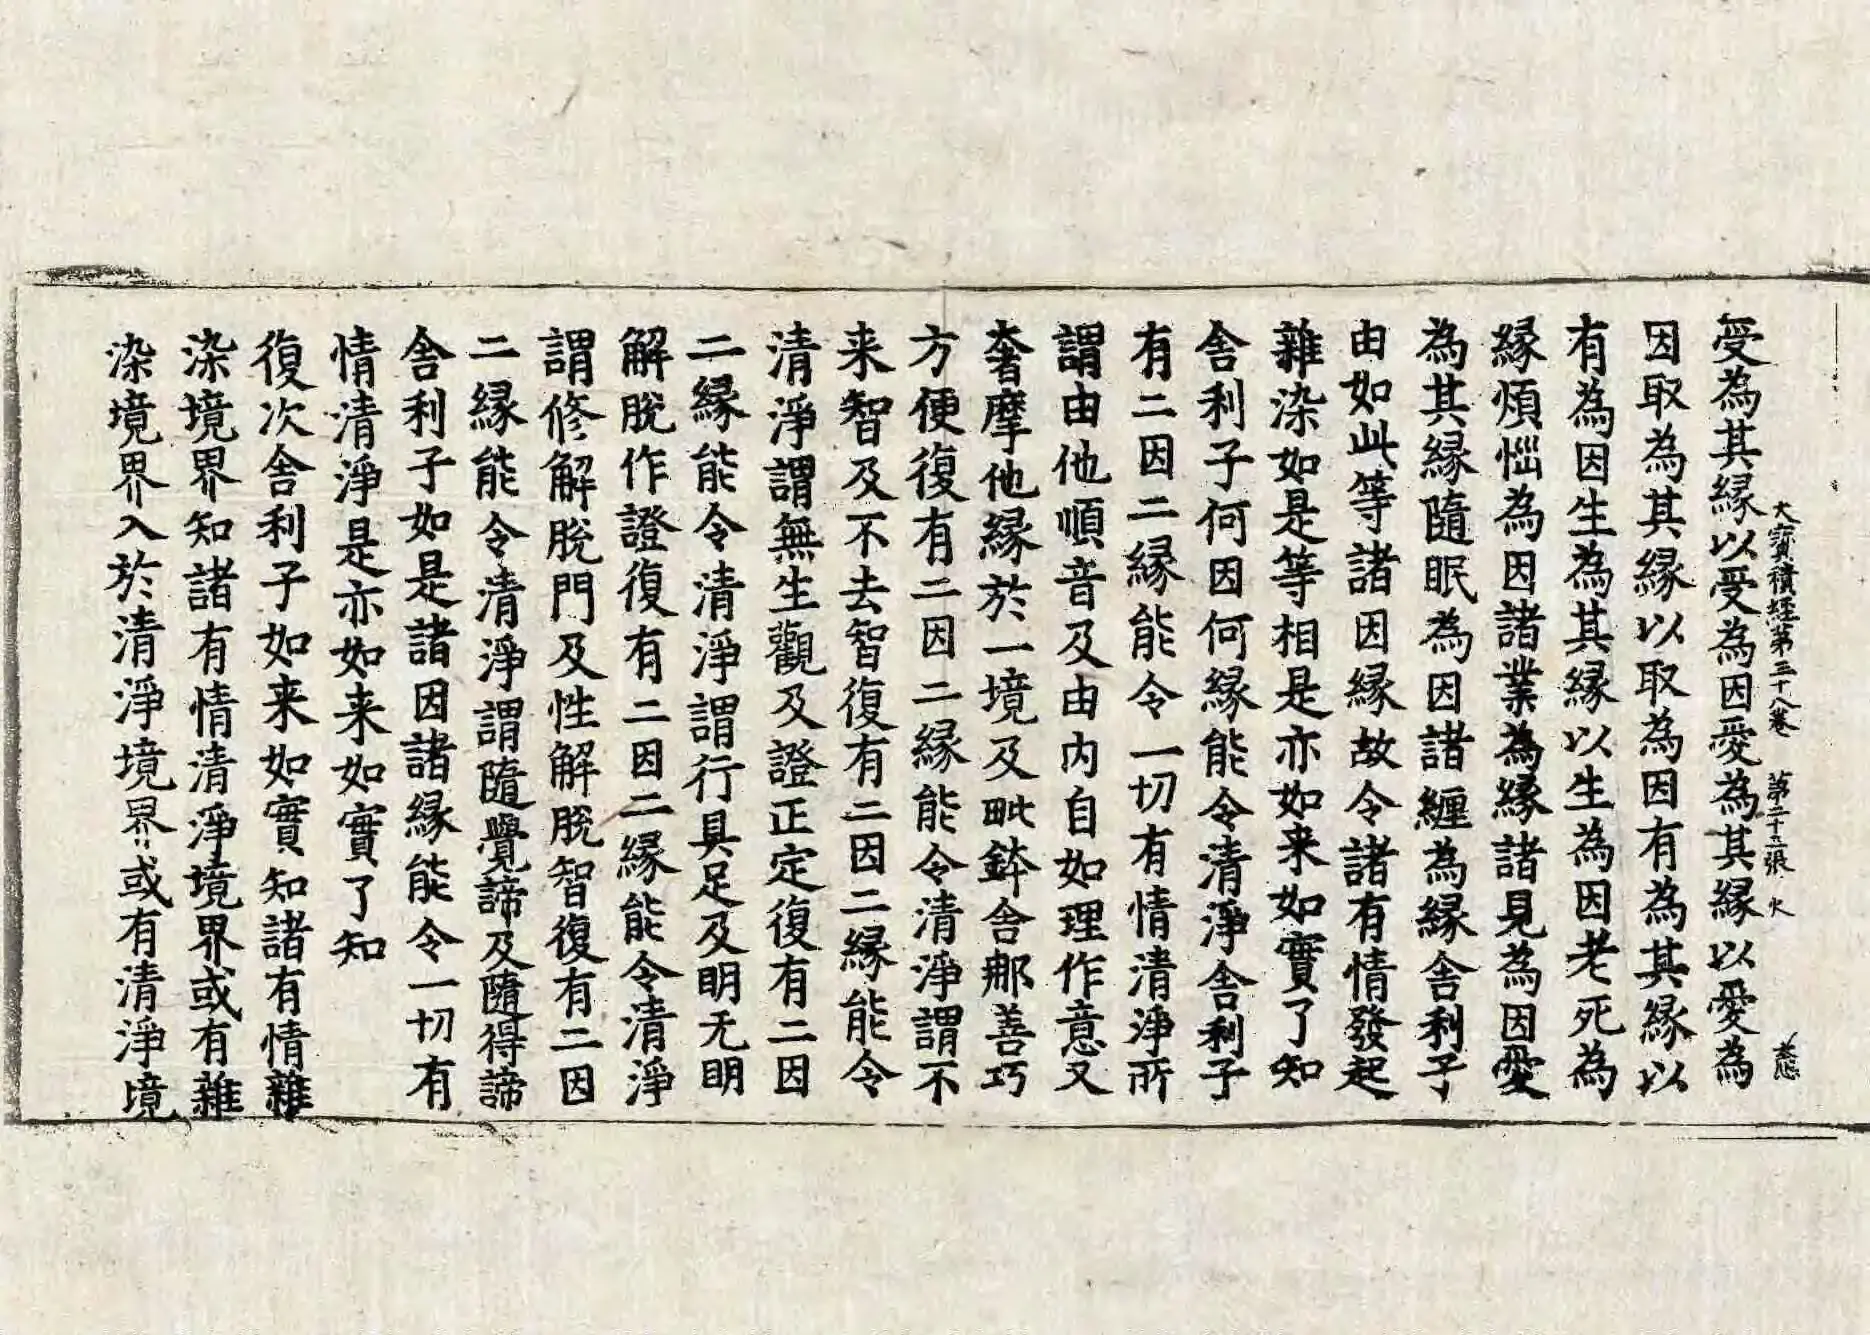 大寳積經第三十八卷 第二十二張 火
受為其縁以受為因愛為其縁以愛為
因取為其縁以取為因有為其縁以
有為因生為其縁以生為因老死為
縁煩惱為因諸業為縁諸見為因愛
為其縁隨眠為因諸纏為縁舎利子
由如此等諸因縁故令諸有情發起
雜染如是等相是亦如来如實了知
舎利子何因何縁能令清淨舎利子
有二因二縁能令一切有情清淨所
謂由他順音及由内自如理作意又
奢摩他縁於一境及毗鉢舎那善巧
方便復有二因二縁能令清淨謂不
来智及不去智復有二因二縁能令
清淨謂無生觀及證正定復有二因
二縁能令清淨謂行具足及明无明
解脫作證復有二因二縁能令清淨
謂修解脫門及性解脫智復有二因
二縁能令清淨謂隨覺諦及隨得諦
舎利子如是諸因諸縁能令一切有
情清淨是亦如来如實了知
復次舎利子如来如實知諸有情雜
染境界知諸有情清淨境界或有雜
染境界入於清淨境界或有清淨境